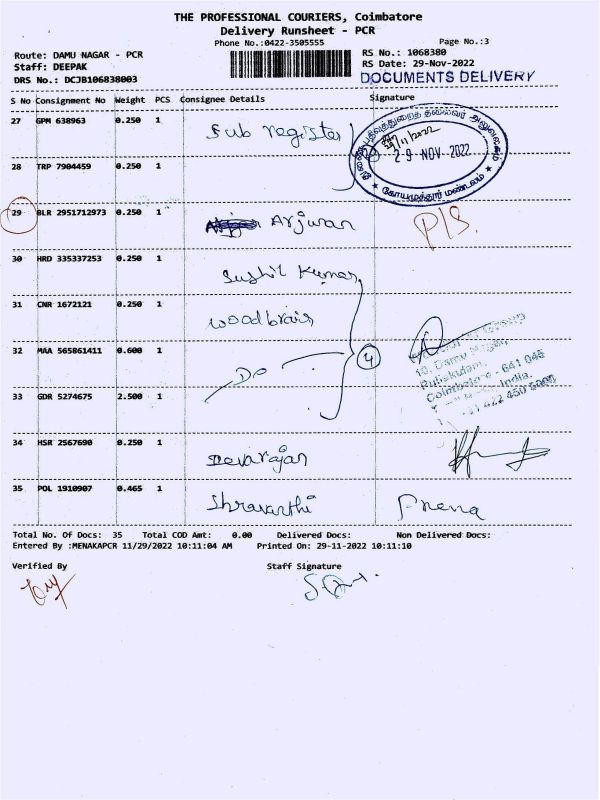 THE PROFESSIONAL COURIERS, Coimbatore
Delivery Runsheet - PCR
Phone No.:0422-3505555
Page No.:3
Route: DAMU NAGAR - PCR
RS No.: 1068380
Staff: DEEPAK
RS Date: 29-Nov-2022
DRS No.: DCJB106838003
DOCUMENTS DELIVERY
S No Consignment No Weight PCS Consignee Details Signature
27 GPM 638963 0.250 1 Sub register
2 9 - NOV - 2022
கோயமுத்தூர் மண்டலம்
28 TRP 7904459 0.250 1
29 BLR 2951712973 0.250 1 Arjunan P/S.
30 HRD 335337253 0.250 1 Sushil Kumar
31 CNR 1672121 0.250 1 woodbrair
32 MAA 565861411 0.600 1 Do 4
Group
10, Damu Nagar,
Puliakulam,
Coimbatore - 641 045
India.
33 GDR 5274675 2.500 1
34 HSR 2567690 0.250 1 Devarajan
35 POL 1910907 0.465 1 Shravanthi Prena
Total No. Of Docs: 35 Total COD Amt: 0.00 Delivered Docs: Non Delivered Docs:
Entered By :MENAKAPCR 11/29/2022 10:11:04 AM Printed On: 29-11-2022 10:11:10
Verified By Staff Signature